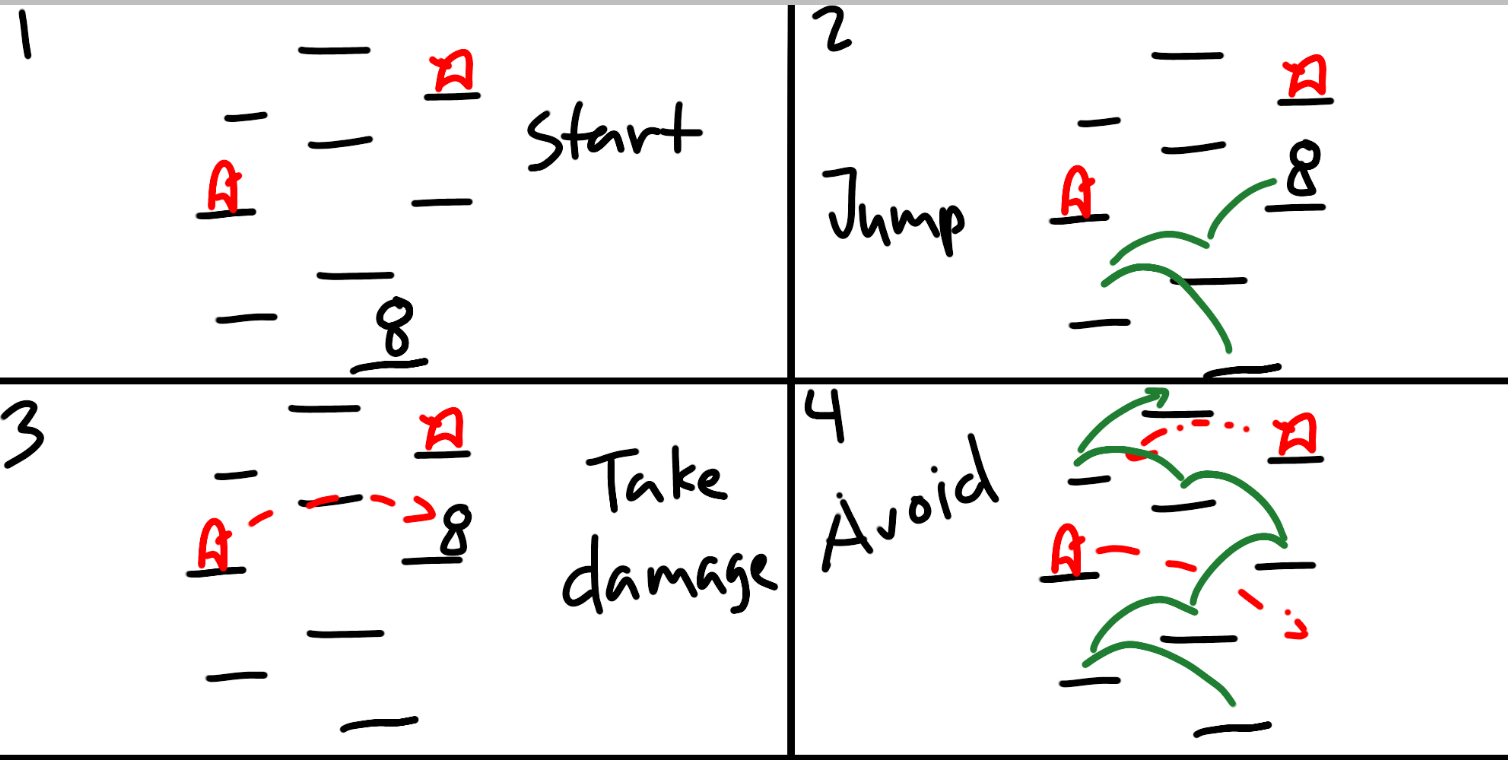 1
Start
2
Jump
3
Take
damage
4
Avoid